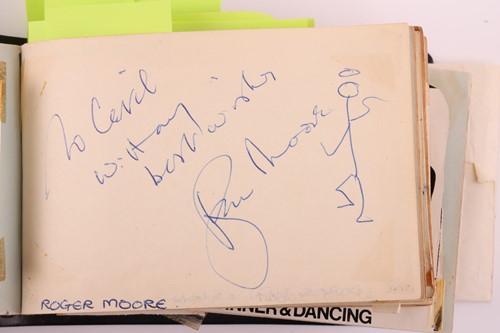 To Cecil
with my
best wishes
Roger Moore
ROGER MOORE
DINNER & DANCING